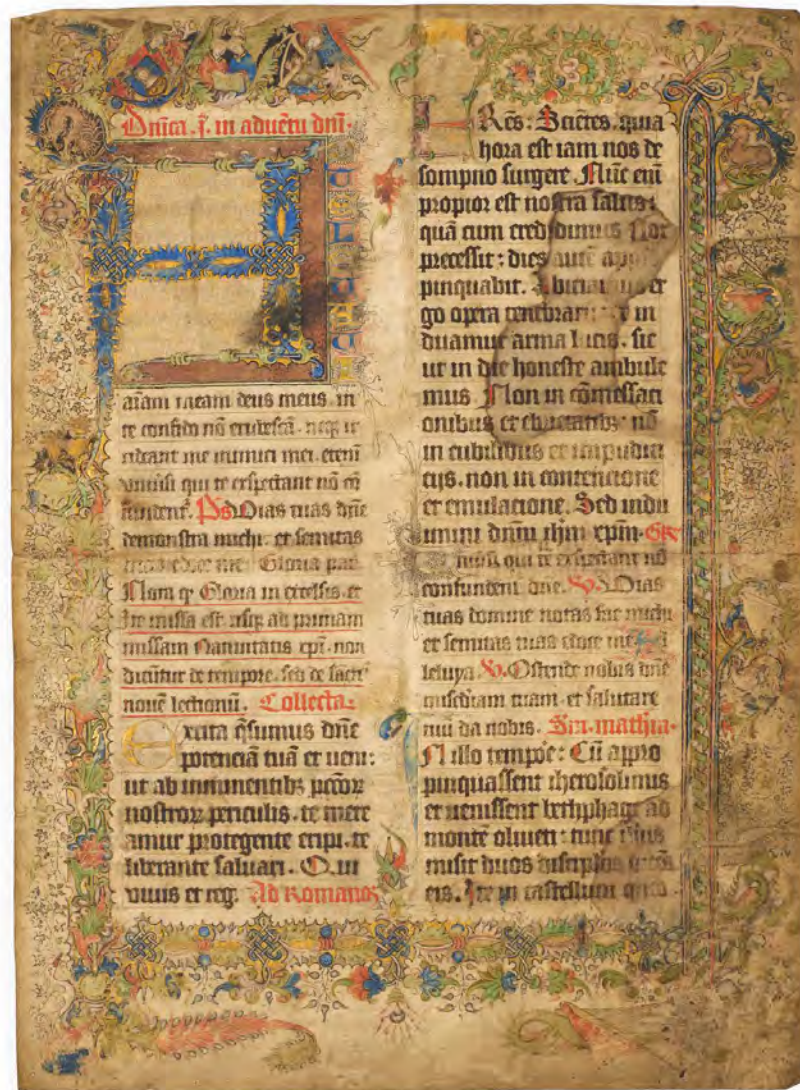 Dn̄ica .ī. in aduētu dn̄i.
A
D
T
E
L
E
U
A
U
I
aīam meam deus meus. in
te confido nō erubescā. neqꝫ ir
rideant me inimici mei. etenī
vniūsi qui te exspectant nō cō
fundent᷑. Ps̄. Uias tuas dn̄e
demonstra michi. et semitas
Gloria pat̄
Nota qꝫ Gloria in excelsis. et
Ite missa est. usqꝫ ad primam
missam Natiuitatis xp̄i. non
dicūtur de tempore. sed de sāctꝭ
nouē lectionū. Collecta.
Excita q̄sumus dn̄e
potenciā tuā et ueni:
ut ab imminentibꝫ pccōꝝ
nostroꝝ periculis. te mere
amur protegente eripi. te
liberante saluari. Q. ui
viuis et reg. Ad Romanos
Frēs: Scientes. quia
hora est iam nos de
sompno surgere. Nūc enī
propior est nostra salus:
quā cum credidimus Nox
precessit: dies autē appro
pinquabit. Abiciamus er
go opera tenebrarum et in
duamur arma lucis. sic
ut in die honeste ambule
mus. Non in cōmessaci
onibus et ebrietatibꝫ nō
in cubilibus et impudici
cijs. non in contencione
et emulacione. Sed indu
imini dnm̄ ihm̄ xpm̄. Gr̄
Uniūsi qui te exspectant nō
confundent᷑ dn̄e. V. Uias
tuas domine notas fac michi
et semitas tuas edoce me. Al
leluya V. Ostende nobis dn̄e
mīsc̄diam tuam. et salutare
tuū da nobis. Sm̄. mathēū.
In illo tempōe: Cū appro
pinquassent iherosolimis
et uenissent bethphage ad
montē oliueti: tunc ihūs
misit duos discipl̄os dicēs
eis. Ite in castellum quod